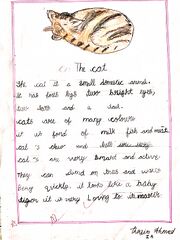 The cat
The cat is a small domestic animal.
It has four legs two bright eyes,
two and a tail.
cats are of many colours
it is fond of milk fish and meat
cat's and
cat's are very and active.
They can on trees and walls
very quickly. it looks like a baby
it is very Loving to its
Ahmed